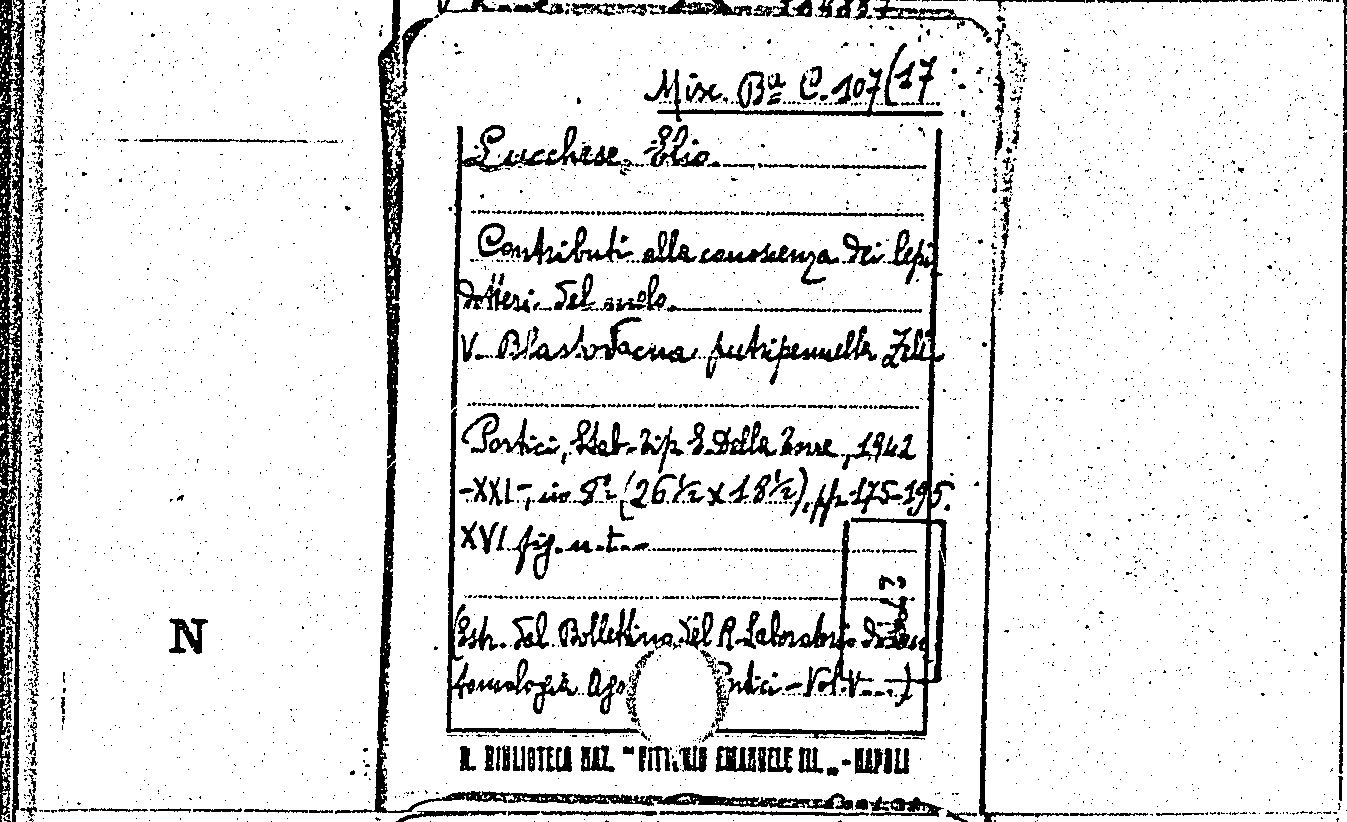 Misc. Bª C. 107(17
Lucchese, Elio.
Contributi alla conoscenza dei lepi
dotteri del melo.
V. Blastodacna putripennella Zell.
Portici, Stab. Tip. E. Della Torre, 1942
-XXI-, in 8º (26½ x 18½), pp. 175-195.
XVI fig. n. t. -
(Estr. dal Bollettino del R. Laboratorio di en
tomologia Ag Portici - Vol. V )
R. BIBLIOTECA NAZ. "VITTORIO EMANUELE III" - NAPOLI
N